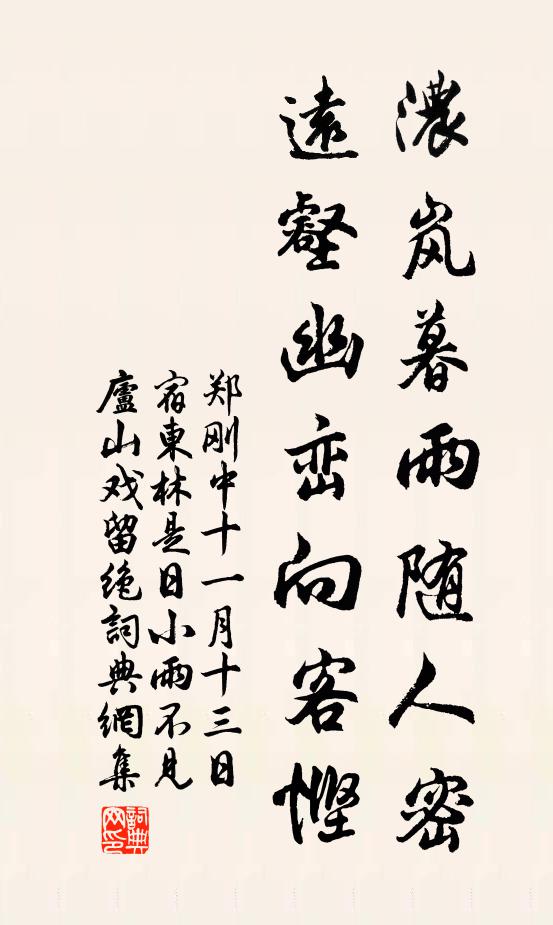 濃岚暮雨随人密
遠壑幽峦向客慳
郑刚中十一月十三日
宿東林是日小雨不見
廬山戏留绝詞典網集
詞典网印